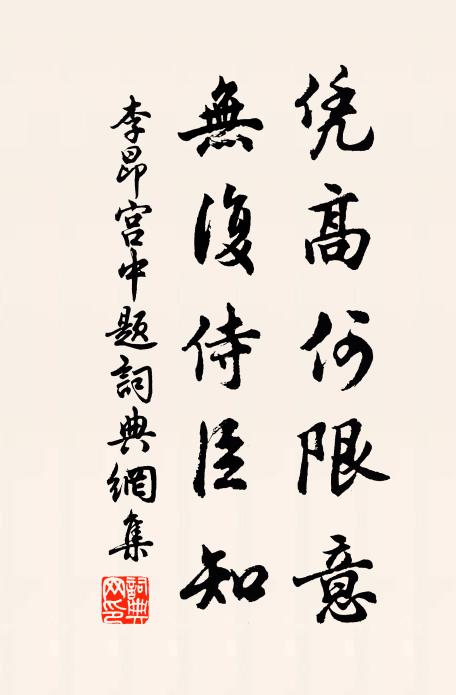 凭高何限意
無復侍臣知
李昂宫中题詞典網集
詞典網印